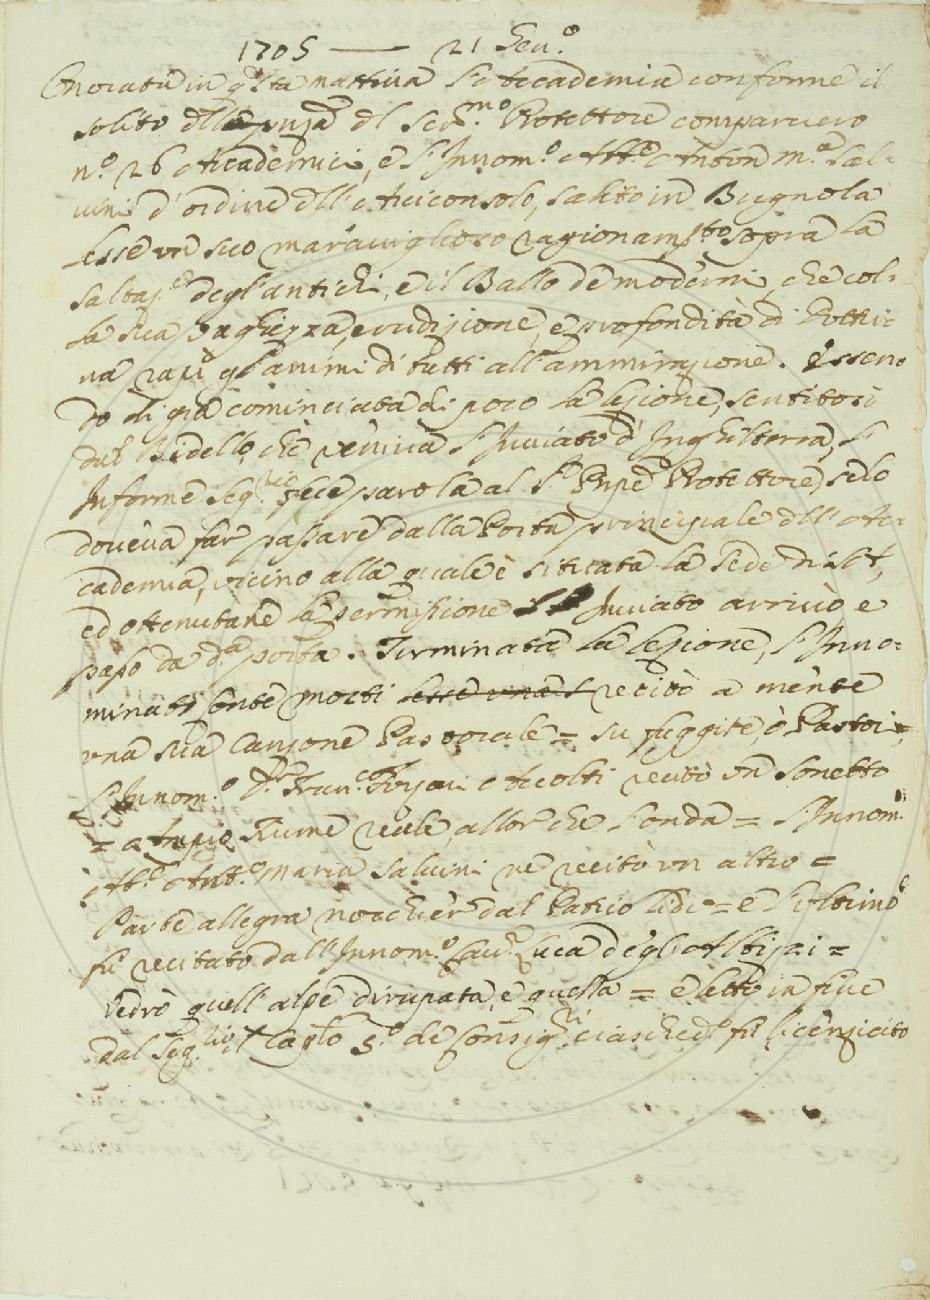 1705 — 21 Gen.o
Convocatasi in q.sta mattina l'Accademia conforme il
solito alla del Ser.mo Protettore comparvero
n.o 26 Accademici, e l'Innom.o Abb.e Anton M.a Sal-
vini d'ordine dell'Arciconsolo, salito in Bugnola
lesse un suo maraviglioso ragionam.to sopra la
saltaz.e degl'antichi, e il Ballo de moderni, che col-
la sua vaghezza, erudizione, e profondità di Dottri-
na rapì gl'animi di tutti all'ammirazione. Essen-
do di già cominciata di poco la lezione, sentitosi
dal Bidello, che veniva l'Inviato d'Inghilterra, l'
Informe Seg.rio fece parola al S.r Prnpe Protettore, se lo
doveva far passare dalla Porta principale dell'Ac-
cademia, vicino alla quale è situata la Sede di S.A,
ed ottenutane la permissione l'Inviato arrivò e
passò da d.a porta. Terminata la lezione, l'Inno-
minato Conte Mozzi lesse una recitò a mente
una sua Canzone Pastorale = su fuggite, ò Pastori =,
l'Innom.o Fran.co Forzoni Accolti recitò un sonetto
= Fiume reale, allor che l'onda = l'Innom.o
Ab.e Ant.o Maria Salvini ne recitò un altro =
Parte allegra nocchier dal Patrio lido = e l'ultimo
fù recitato dall'Innom.o Cav.r Luca degl'Albizzi =
Vedrò quell'alpe dirupata, e quella = e letto in fine
dal Seg.rio il Cap.lo 5.o de Consig.ri ciasched.o fù licenziato